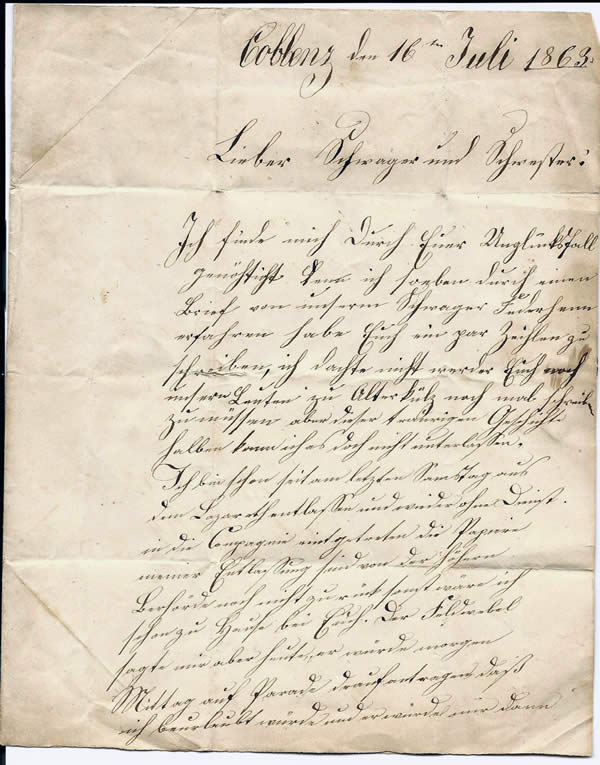 Coblenz den 16ten Juli 1863.
Lieber Schwager und Schwester!
Ich finde mich durch Euer Unglücksfall
genöhticht den ich soeben durch einen
Brief von unserm Schwager Federhenn
erfahren habe Euch ein par Zeihlen zu
schreiben, ich dachte nicht weder Euch noch
unsern Leuten zu Alterkülz noch mal schreiben
zu müssen aber dieser traurigen Geschichte
halben kann ich es doch nicht unterlassen.
Ich bin schon seit am letzten Samstag aus
dem Lazareth entlassen und wieder ohne Dienst
in die Compagnie eingetreten die Papiere
meiner Entlassung sind von der höhern
Berhörde noch nicht zu rück sonst wäre ich
schon zu Hause bei Euch. Der Feldwebel
sagte mir aber heute, er würde morgen
Mittag auf Parade drauf antragen daß
ich beurlaubt würde und er würde mir dann